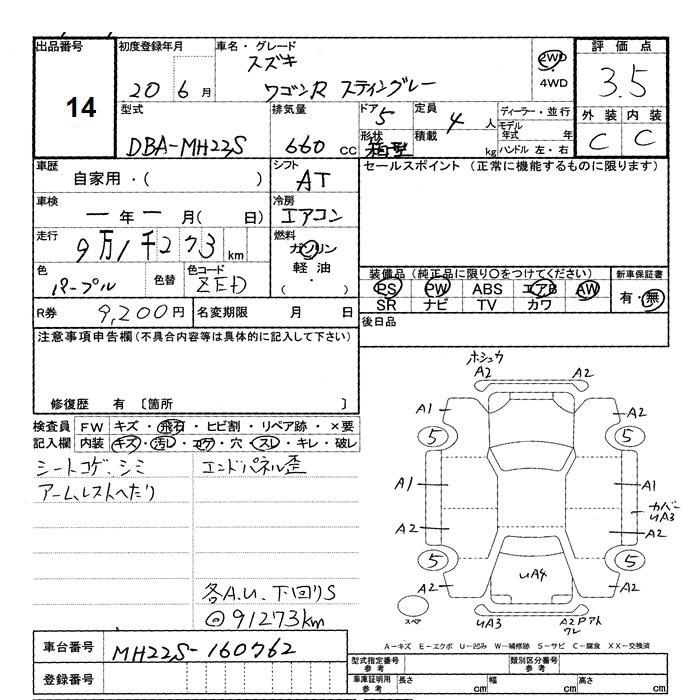 出品番号 初度登録年月 車名・グレード 評価点
14
20 6月
スズキ
ワゴンR スティングレー
2WD
・
4WD
3.5
型式 排気量 ドア 定員 ディーラー・並行 外装 内装
DBA-MH22S 660cc 5 4人 モデル年式 年 C C
形状 積載
箱型 kg ハンドル 左・右
車歴 シフト セールスポイント (正常に機能するものに限ります)
自家用・( ) AT
車検 冷房
ー年ー月( 日) エアコン
走行 燃料
9万1千273km ガソリン
軽油
( ・ )
色 色替 色コード
パープル ZED
装備品(純正品に限り○をつけてください) 新車保証書
PS PW ABS エアB AW 有・無
SR ナビ TV カワ
R券 9,200円 名変期限 月 日
後日品
注意事項申告欄(不具合内容等は具体的に記入して下さい)
修復歴 有 〔箇所 〕
検査員 FW キズ・飛石・ヒビ割・リペア跡・×要
記入欄 内装 キズ・汚レ・コゲ・穴・スレ・キレ・破レ
シートコゲ、シミ エンドパネル歪
アームレストへたり
各A.U.下回りS
@91273km
ホシュウ
A2 A2
A1 A2
5 5
A1 A1
カバー
UA3
A2 A2
5 5
A2 UA4 A2
スペア UA3 A2Pアト
ワレ
A−キズ E−エクボ U−凹み W−補修跡 S−サビ C−腐食 XX−交換済
車台番号 MH22S-160762
登録番号
型式指定番号 参考 類別区分番号 参考
車庫証明用 参考 長さ cm 幅 cm 高さ cm